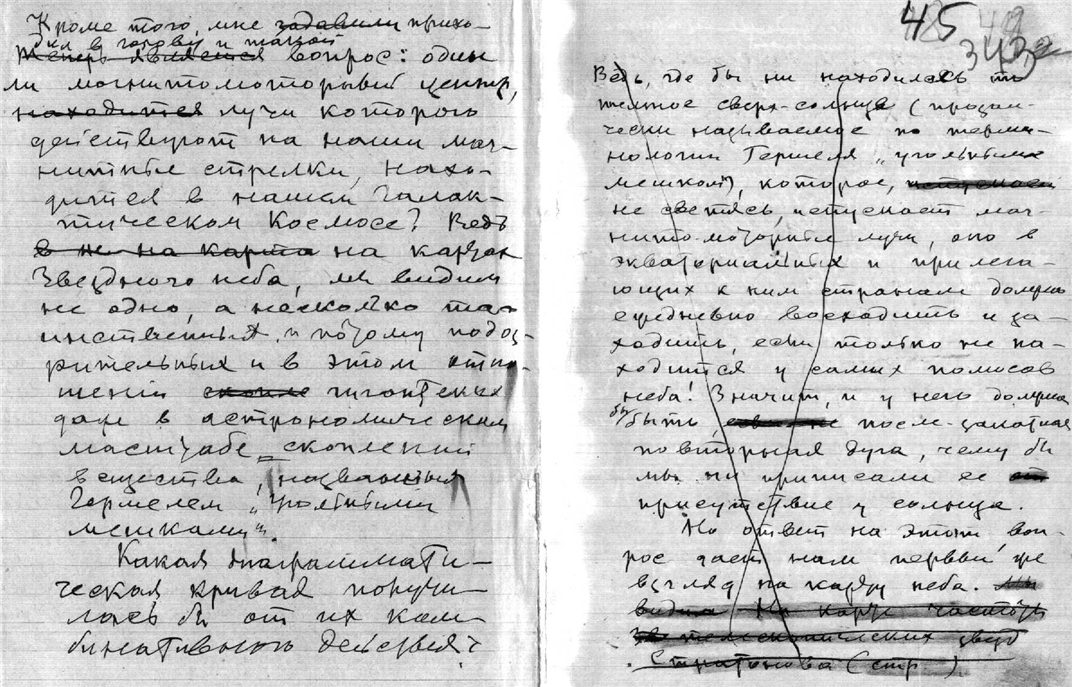 Кроме того, мне задавили прихо-
дил в голову и такой
Теперь является вопрос: один
ли магнитомоторный центр,
находится лучи которого
действуют на наши маг-
нитные стрелки, нахо-
дится в нашем Галак-
тическом Космосе? Ведь
в не на карта на картах
Звездного неба, мы видим
не одно, а несколько та-
инственных и потому подоз-
рительных и в этом отно-
шении гигантских
даже в астрономическом
масштабе скоплений
вещества, названных
Гершелем „Угольными
мешками".
Какая диаграммати-
ческая кривая получи-
лась бы от их ком-
бинативного действия?
45
343
Ведь, где бы ни находилось это
темное сверх-солнце (прозаи-
чески называемое по терми-
нологии Гершеля „угольным
мешком"), которое,
не светясь, испускает маг-
нито-моторные лучи, оно в
экваториальных и прилега-
ющих к ним странах должно
ежедневно восходить и за-
ходить, если только не на-
ходится у самых полюсов
неба! Значит, и у него должна
бы быть, после-закатная
повторная дуга, чему бы
мы ни приписали ее
присутствие у солнца.
Но ответ на этот воп-
рос дает нам первый же
взгляд на карту неба. Мы
видим На карте
телескопических звезд
Стратонова (стр )